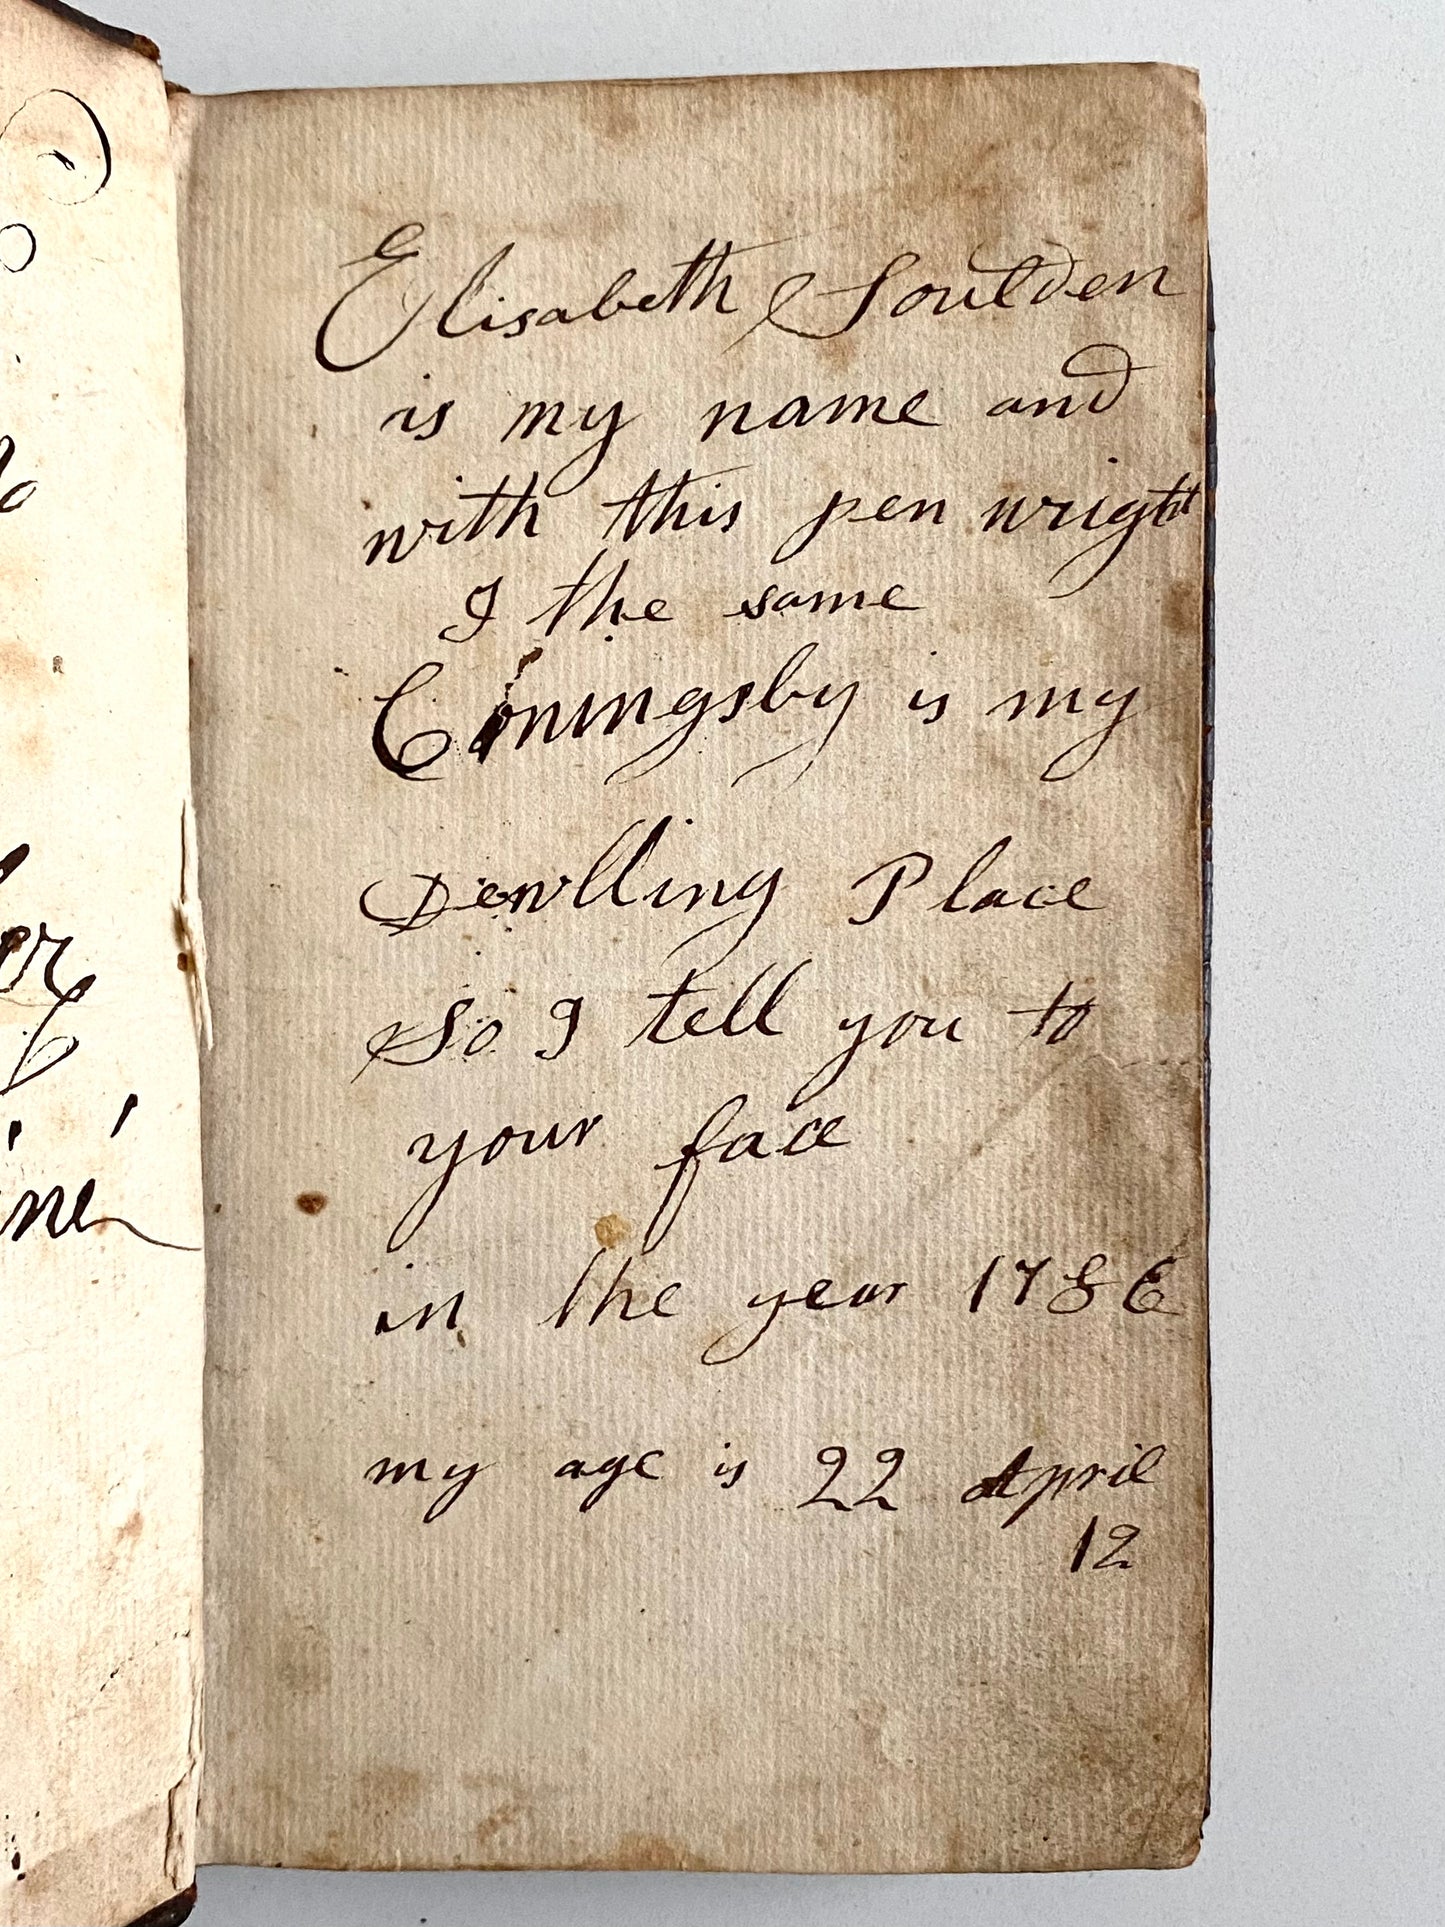 Elisabeth Soulden
is my name and
with this pen wright
I the same
Coningsby is my
Dewlling Place
So I tell you to
your face
in the year 1786
my age is 22 April
12